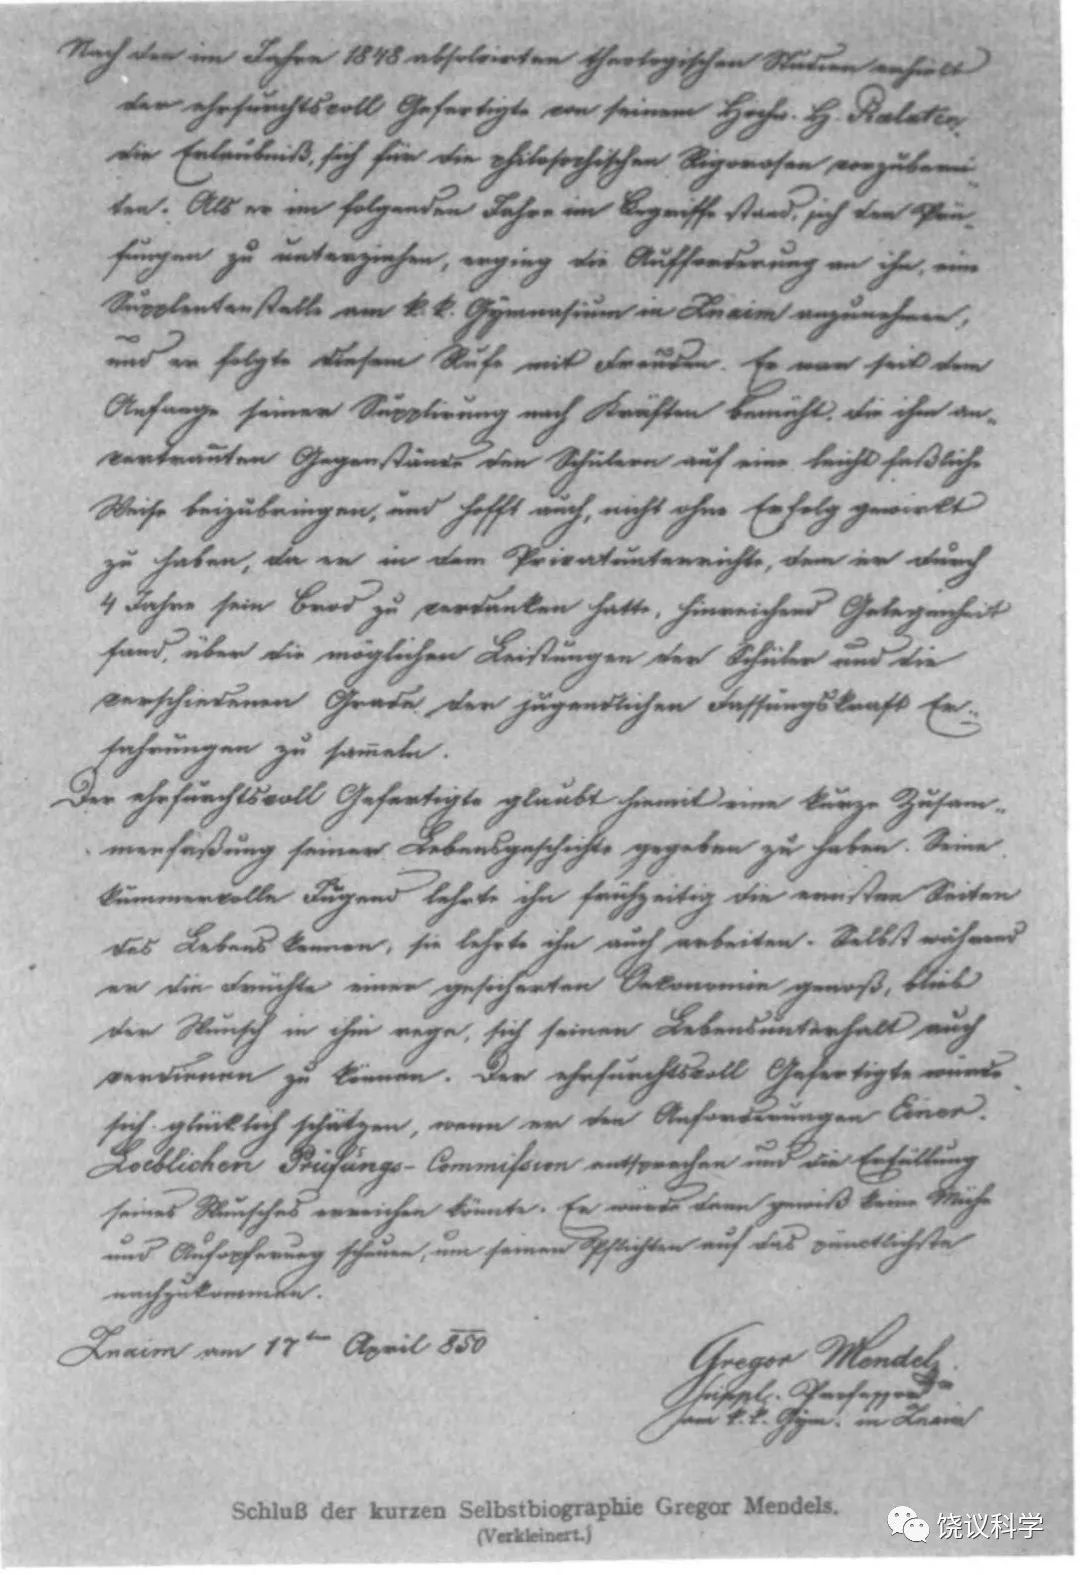 Nach den im Jahre 1848 absolvirten theologischen Studien erhielt
der ehrfurchtsvoll Gefertigte von seinem Hochw. H. Prälaten
die Erlaubniß, sich für die philosophischen Rigorosen vorzuberei-
ten. Als er im folgenden Jahre im Begriffe stand, sich den Prü-
fungen zu unterziehen, erging die Aufforderung an ihn, eine
Supplentenstelle am k. k. Gymnasium in Znaim anzunehmen,
und er folgte diesem Rufe mit Freuden. Er war seit dem
Anfange seiner Supplirung nach Kräften bemüht, die ihm an-
vertrauten Gegenstände den Schülern auf eine leicht faßliche
Weise beizubringen, und hofft auch, nicht ohne Erfolg gewirkt
zu haben, da er in dem Privatunterrichte, dem er durch
4 Jahre sein Brod zu verdanken hatte, hinreichend Gelegenheit
fand, über die möglichen Leistungen der Schüler und die
verschiedenen Grade der jugendlichen Fassungskraft Er-
fahrungen zu sam̄eln.
Der ehrfurchtsvoll Gefertigte glaubt hiemit eine kurze Zusam-
menfaßung seiner Lebensgeschichte gegeben zu haben. Seine
kummervolle Jugend lehrte ihn frühzeitig die ernsten Seiten
des Lebens kennen, sie lehrte ihn auch arbeiten. Selbst während
er die Früchte einer gesicherten Oekonomie genoß, blieb
der Wunsch in ihm rege, sich seinen Lebensunterhalt auch
verdienen zu können. Der ehrfurchtsvoll Gefertigte würde
sich glücklich schätzen, wenn er den Anforderungen Einer
Loeblichen Prüfungs-Commission entsprechen und die Erfüllung
seines Wunsches erreichen könnte. Er würde dann gewiß keine Mühe
und Aufopferung scheuen, um seinen Pflichten auf das pünctlichste
nachzukommen.
Znaim am 17ten April 850
Gregor Mendel
suppl. Professor
am k. k. Gym. in Znaim
Schluß der kurzen Selbstbiographie Gregor Mendels.
(Verkleinert.)
饶议科学